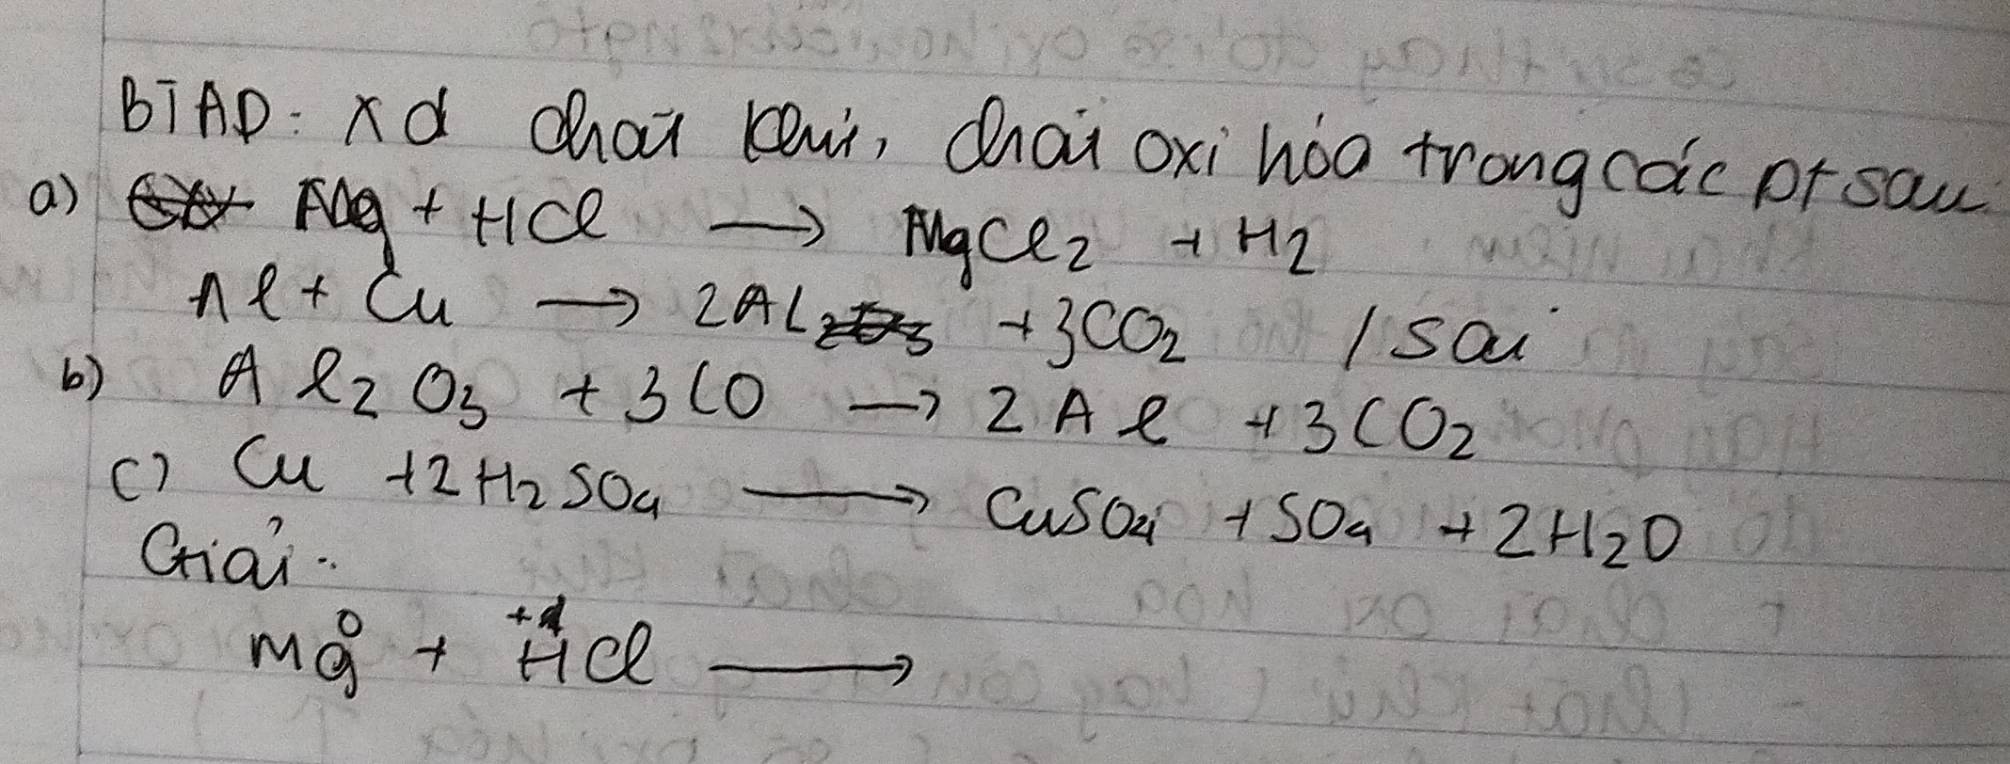 BTAD: xđ chất khử, chất oxi hóa trong các pt sau
a) Mg + HCl → MgCl2 + H2
Al + Cu → 2Al + 3CO2 / sai
b) Al2O3 + 3CO → 2Al + 3CO2
c) Cu + 2H2SO4 → CuSO4 + SO4 + 2H2O
Giải:
Mg⁰ + H⁺¹Cl →